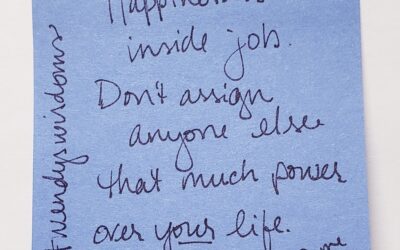 Happiness is
inside job.
Don't assign
anyone else
that much power
over your life.
#wendyswisdoms